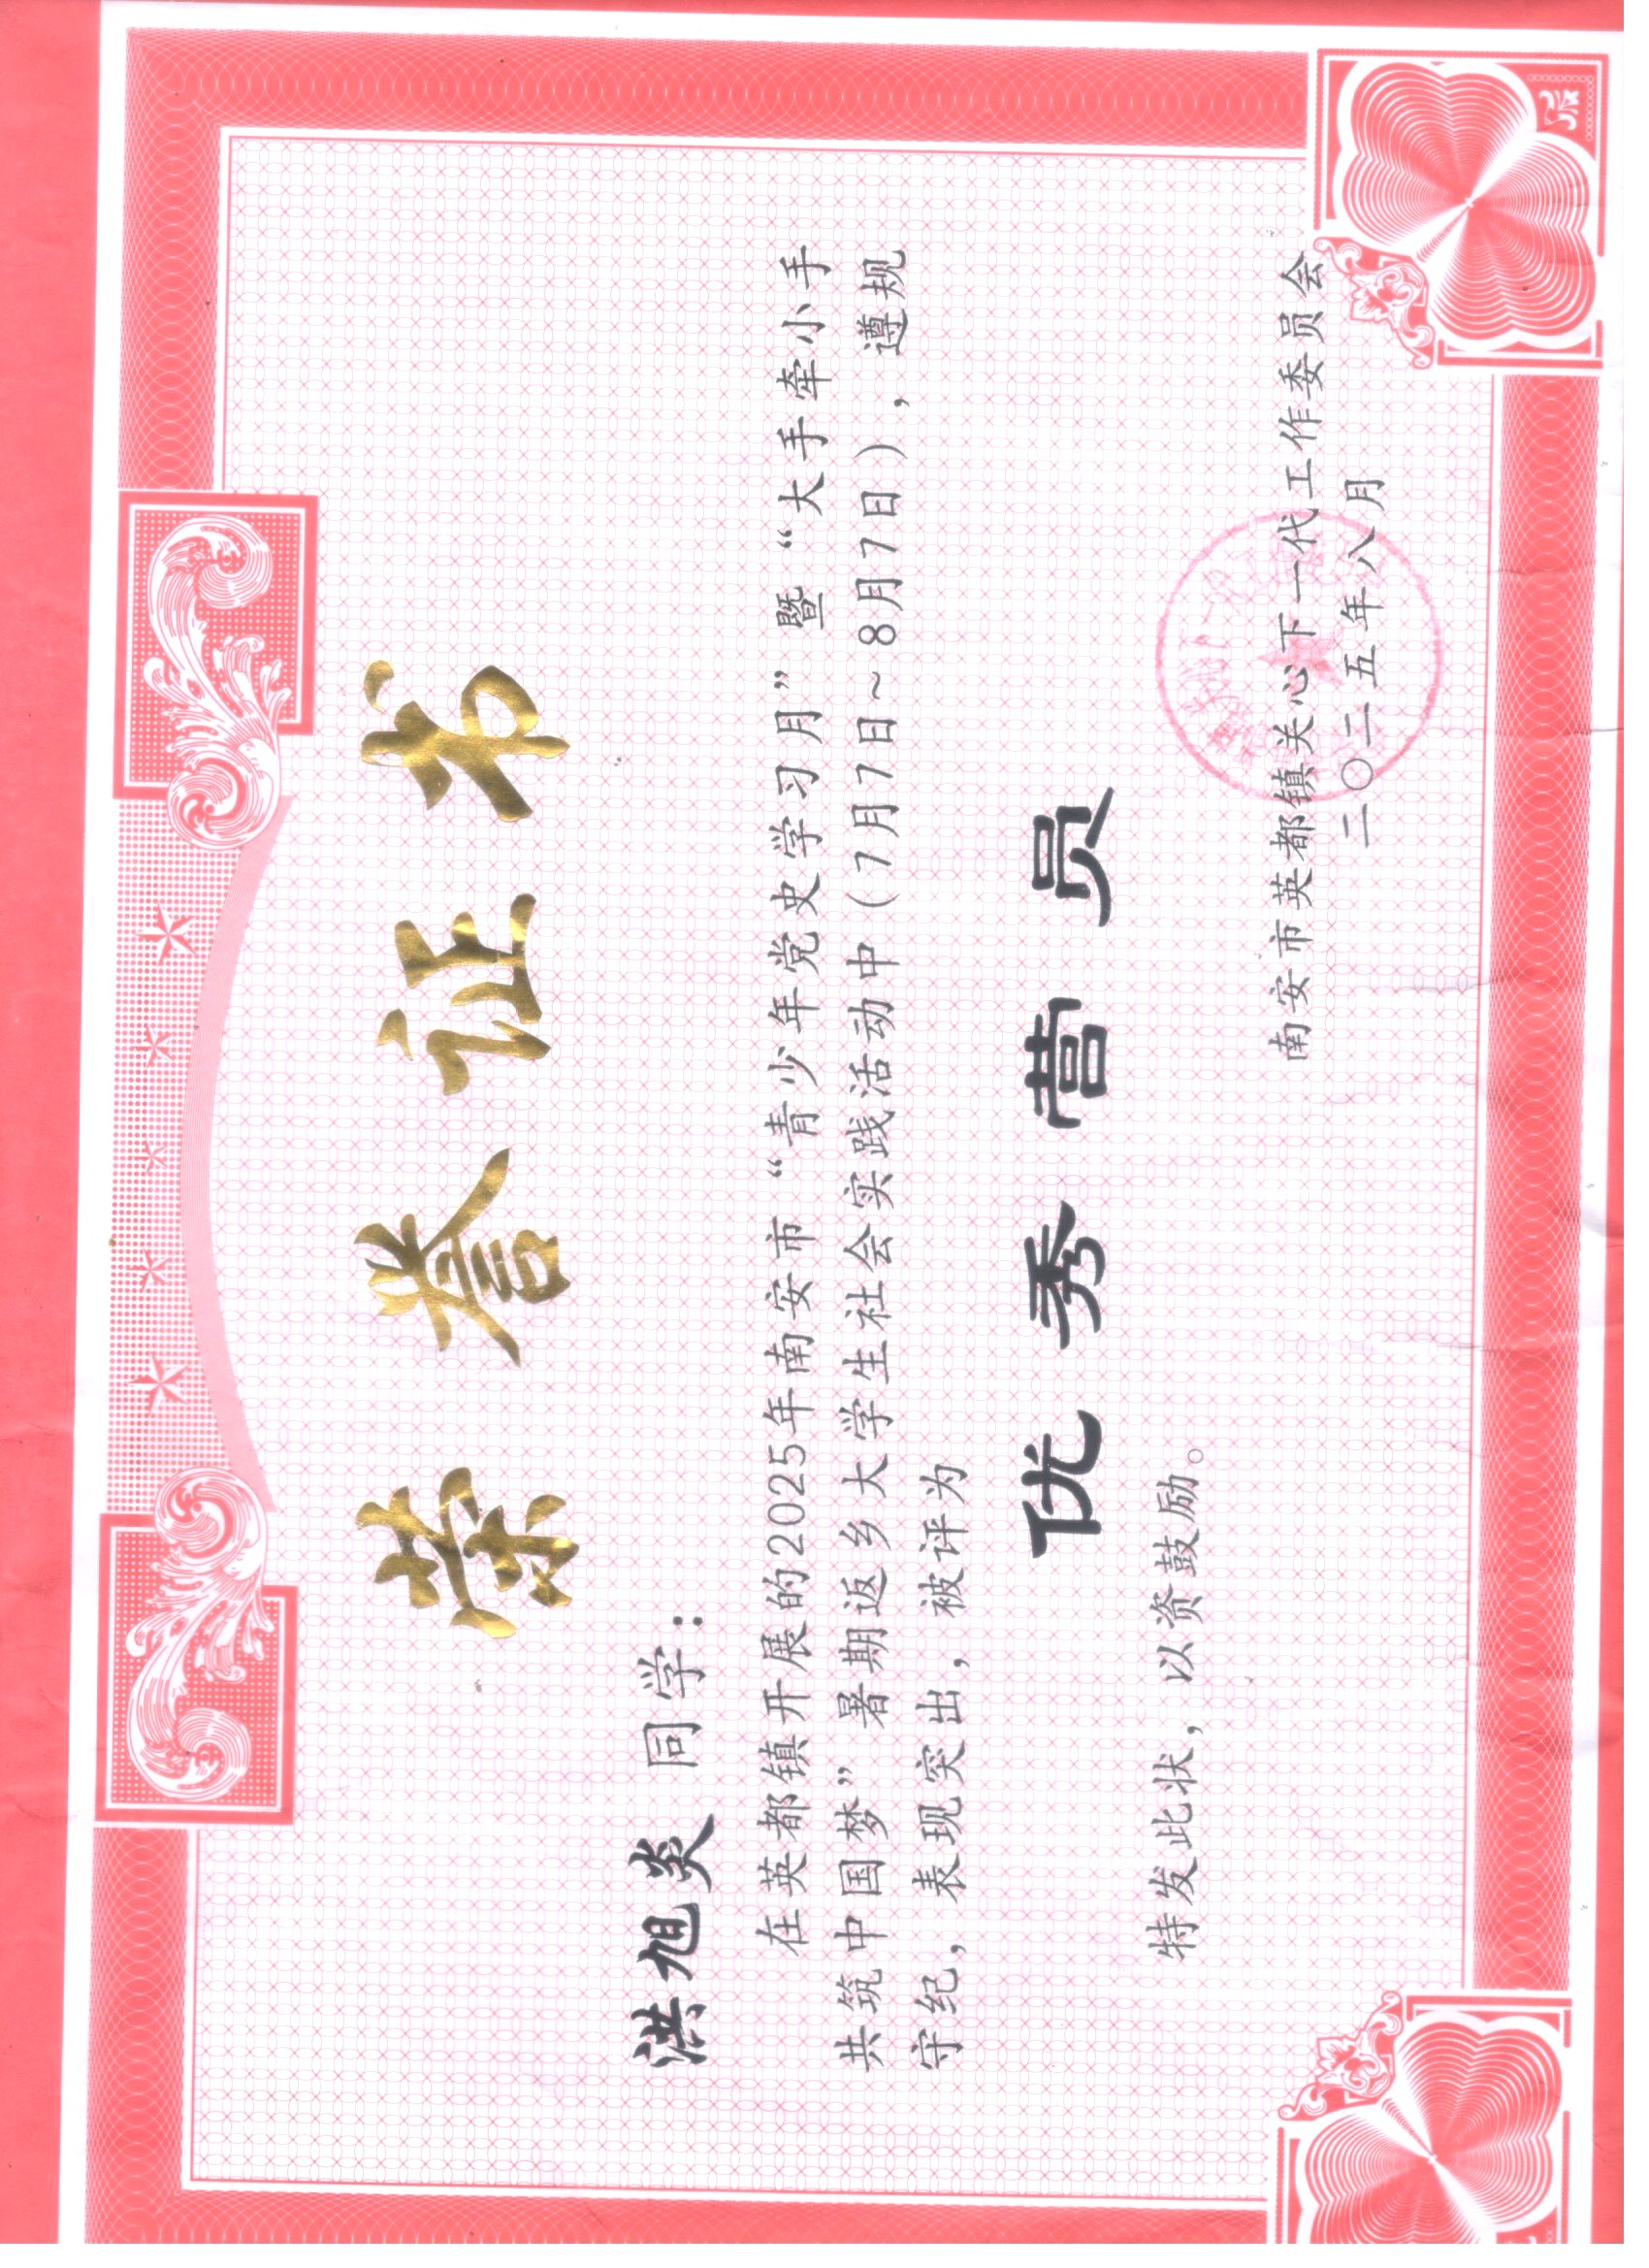 荣誉证书
洪旭炎 同学：
在英都镇开展的2025年南安市“青少年党史学习月”暨“大手牵小手
共筑中国梦”暑期返乡大学生社会实践活动中（7月7日~8月7日），遵规
守纪，表现突出，被评为
优秀营员
特发此状，以资鼓励。
南安市英都镇关心下一代工作委员会
二〇二五年八月